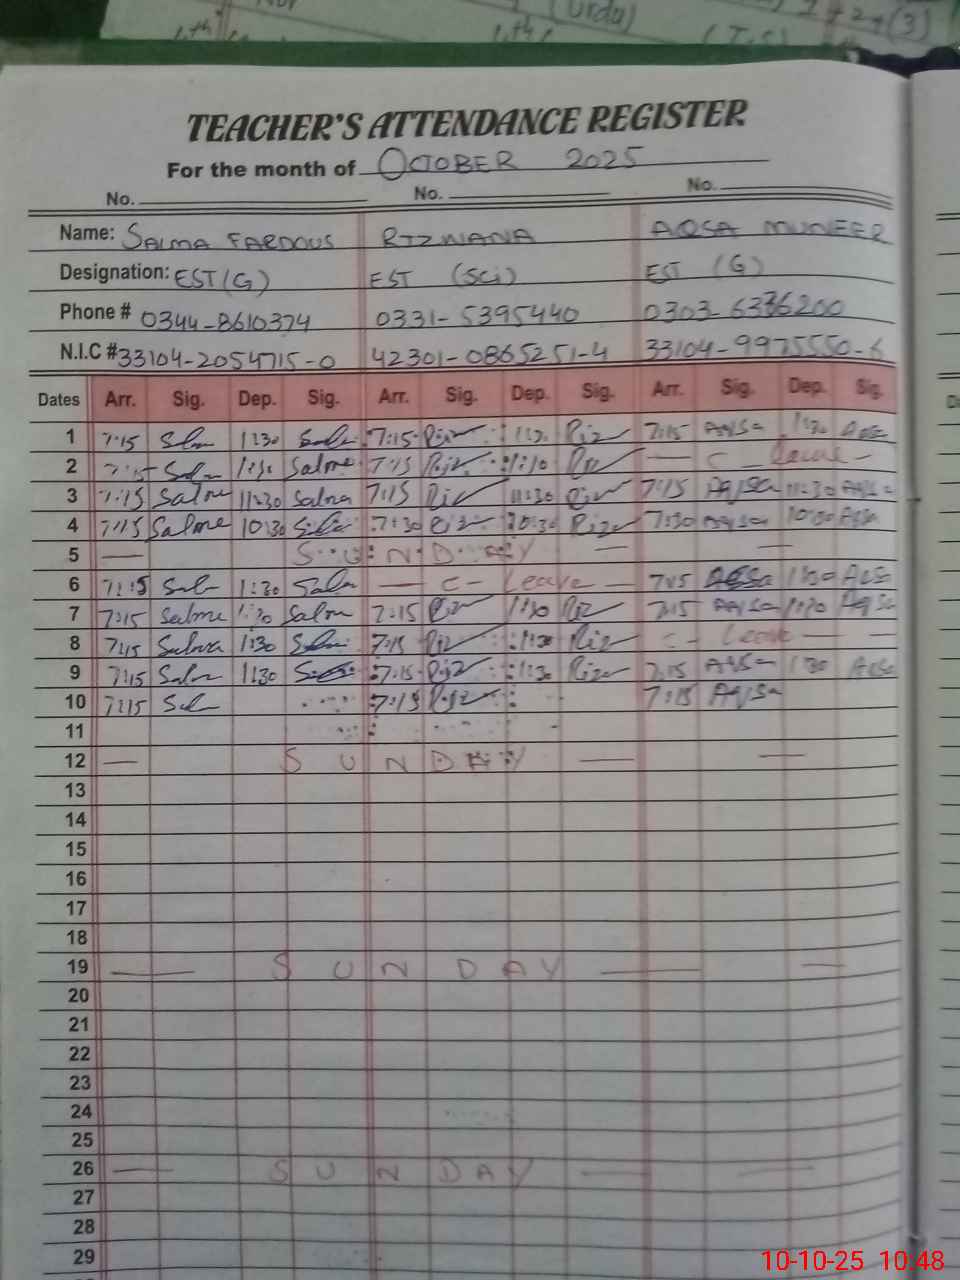 (Urdu)
TEACHER'S ATTENDANCE REGISTER
For the month of OCTOBER 2025
No. No. No.
Name: SALMA FARDOUS RIZWANA AQSA MUNEER
Designation: EST (G) EST (Sci) EST (G)
Phone # 0344-8610374 0331-5395440 0303-6336200
N.I.C # 33104-2054715-0 42301-0865251-4 33104-9975550-6
Dates Arr. Sig. Dep. Sig. Arr. Sig. Dep. Sig. Arr. Sig. Dep. Sig.
1 7:15 1:30 7:15 Riz 1:30 Riz 7:15 Aqsa 1:30 Aqsa
2 7:15 Salma 1:30 Salma 7:15 Riz Riz — C — Leave —
3 7:15 Salma 11:30 Salma 7:15 Riz 11:30 Riz 7:15 Aqsa 11:30 Aqsa
4 7:15 Salma 10:30 7:30 Riz 10:30 Riz 7:30 Aqsa Aqsa
5 — SUNDAY — —
6 7:15 Salm 1:30 Salma — C — Leave — 7:15 Aqsa 1:30 Aqsa
7 7:15 Salma 1:30 Salma 7:15 Riz 1:30 Riz 7:15 Aqsa 1:30 Aqsa
8 7:15 Salma 1:30 7:15 Riz 1:30 Riz C — Leave —
9 7:15 Salma 1:30 7:15 Riz 1:30 Riz 7:15 Aqsa 1:30 Aqsa
10 7:15 Sal 7:15 Riz 7:15 Aqsa
11
12 — SUNDAY — —
13
14
15
16
17
18
19 — SUNDAY — —
20
21
22
23
24
25
26 — SUNDAY — —
27
28
29
10-10-25 10:48